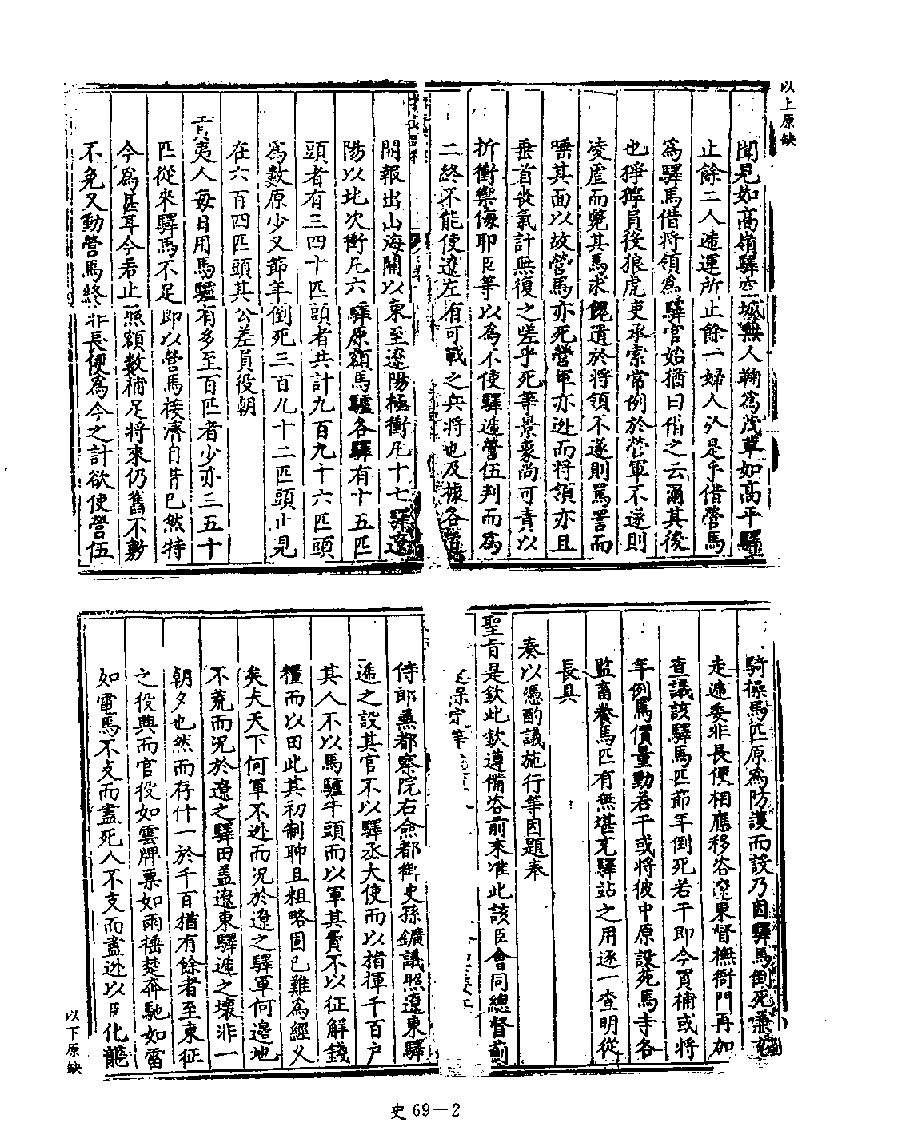 以上原缺
聞見如高嶺驛空城無人鞠為茂草如高平驛
止餘二人遞運所止餘一婦人於是乎借營馬
為驛馬借將領為驛官始猶曰借之云爾其後
也獰獰員役狼虎吏承索常例於營軍不遂則
凌虐而斃其馬求餽遺於將領不遂則罵詈而
唾其面以故營馬亦死營軍亦逃而將領亦且
垂首喪氣計無復之嗟乎死等景象尚可責以
折衝禦侮耶臣等以為不使驛遞營伍判而為
二終不能使遼左有可戰之兵將也及據各
開報出山海關以東至遼陽極衝凡十七驛遼
陽以北次衝凡六驛原額馬驢各驛有十五匹
頭者有三四十匹頭者共計九百九十六匹頭
為數原少又節年倒死三百九十二匹頭止見
在六百四匹頭其公差員役朝
貢夷人每日用馬驢有多至百匹者少亦三五十
匹從來驛馬不足即以營馬接濟自昔已然特
今為甚耳今若止照額數補足將來仍舊不敷
不免又動營馬終非長便為今之計欲使營伍
騎操馬匹原為防護而設乃因驛馬倒死
走遞委非長便相應移咨遼東督撫衙門再加
查議該驛馬匹節年倒死若干即今買補或將
年例馬價量動若干或將彼中原設苑馬寺各
監畜養馬匹有無堪充驛站之用逐一查明從
長具
奏以憑酌議施行等因題奉
聖旨是欽此欽遵備咨前來准此該臣會同總督薊
侍郎兼都察院右僉都御史孫鑛議照遼東驛
遞之設其官不以驛丞大使而以指揮千百戶
其人不以馬驢牛頭而以軍其費不以征解錢
糧而以田此其初制聊且粗略固已難為經久
矣夫天下何軍不逃而況於遼之驛軍何邊地
不荒而況於遼之驛田蓋遼東驛遞之壞非一
朝夕也然而存什一於千百猶有餘者至東征
之役興而官役如雲牌票如雨捶楚奔馳如雷
如電馬不支而盡死人不支而盡逃以日化龍
以下原缺
史69－2